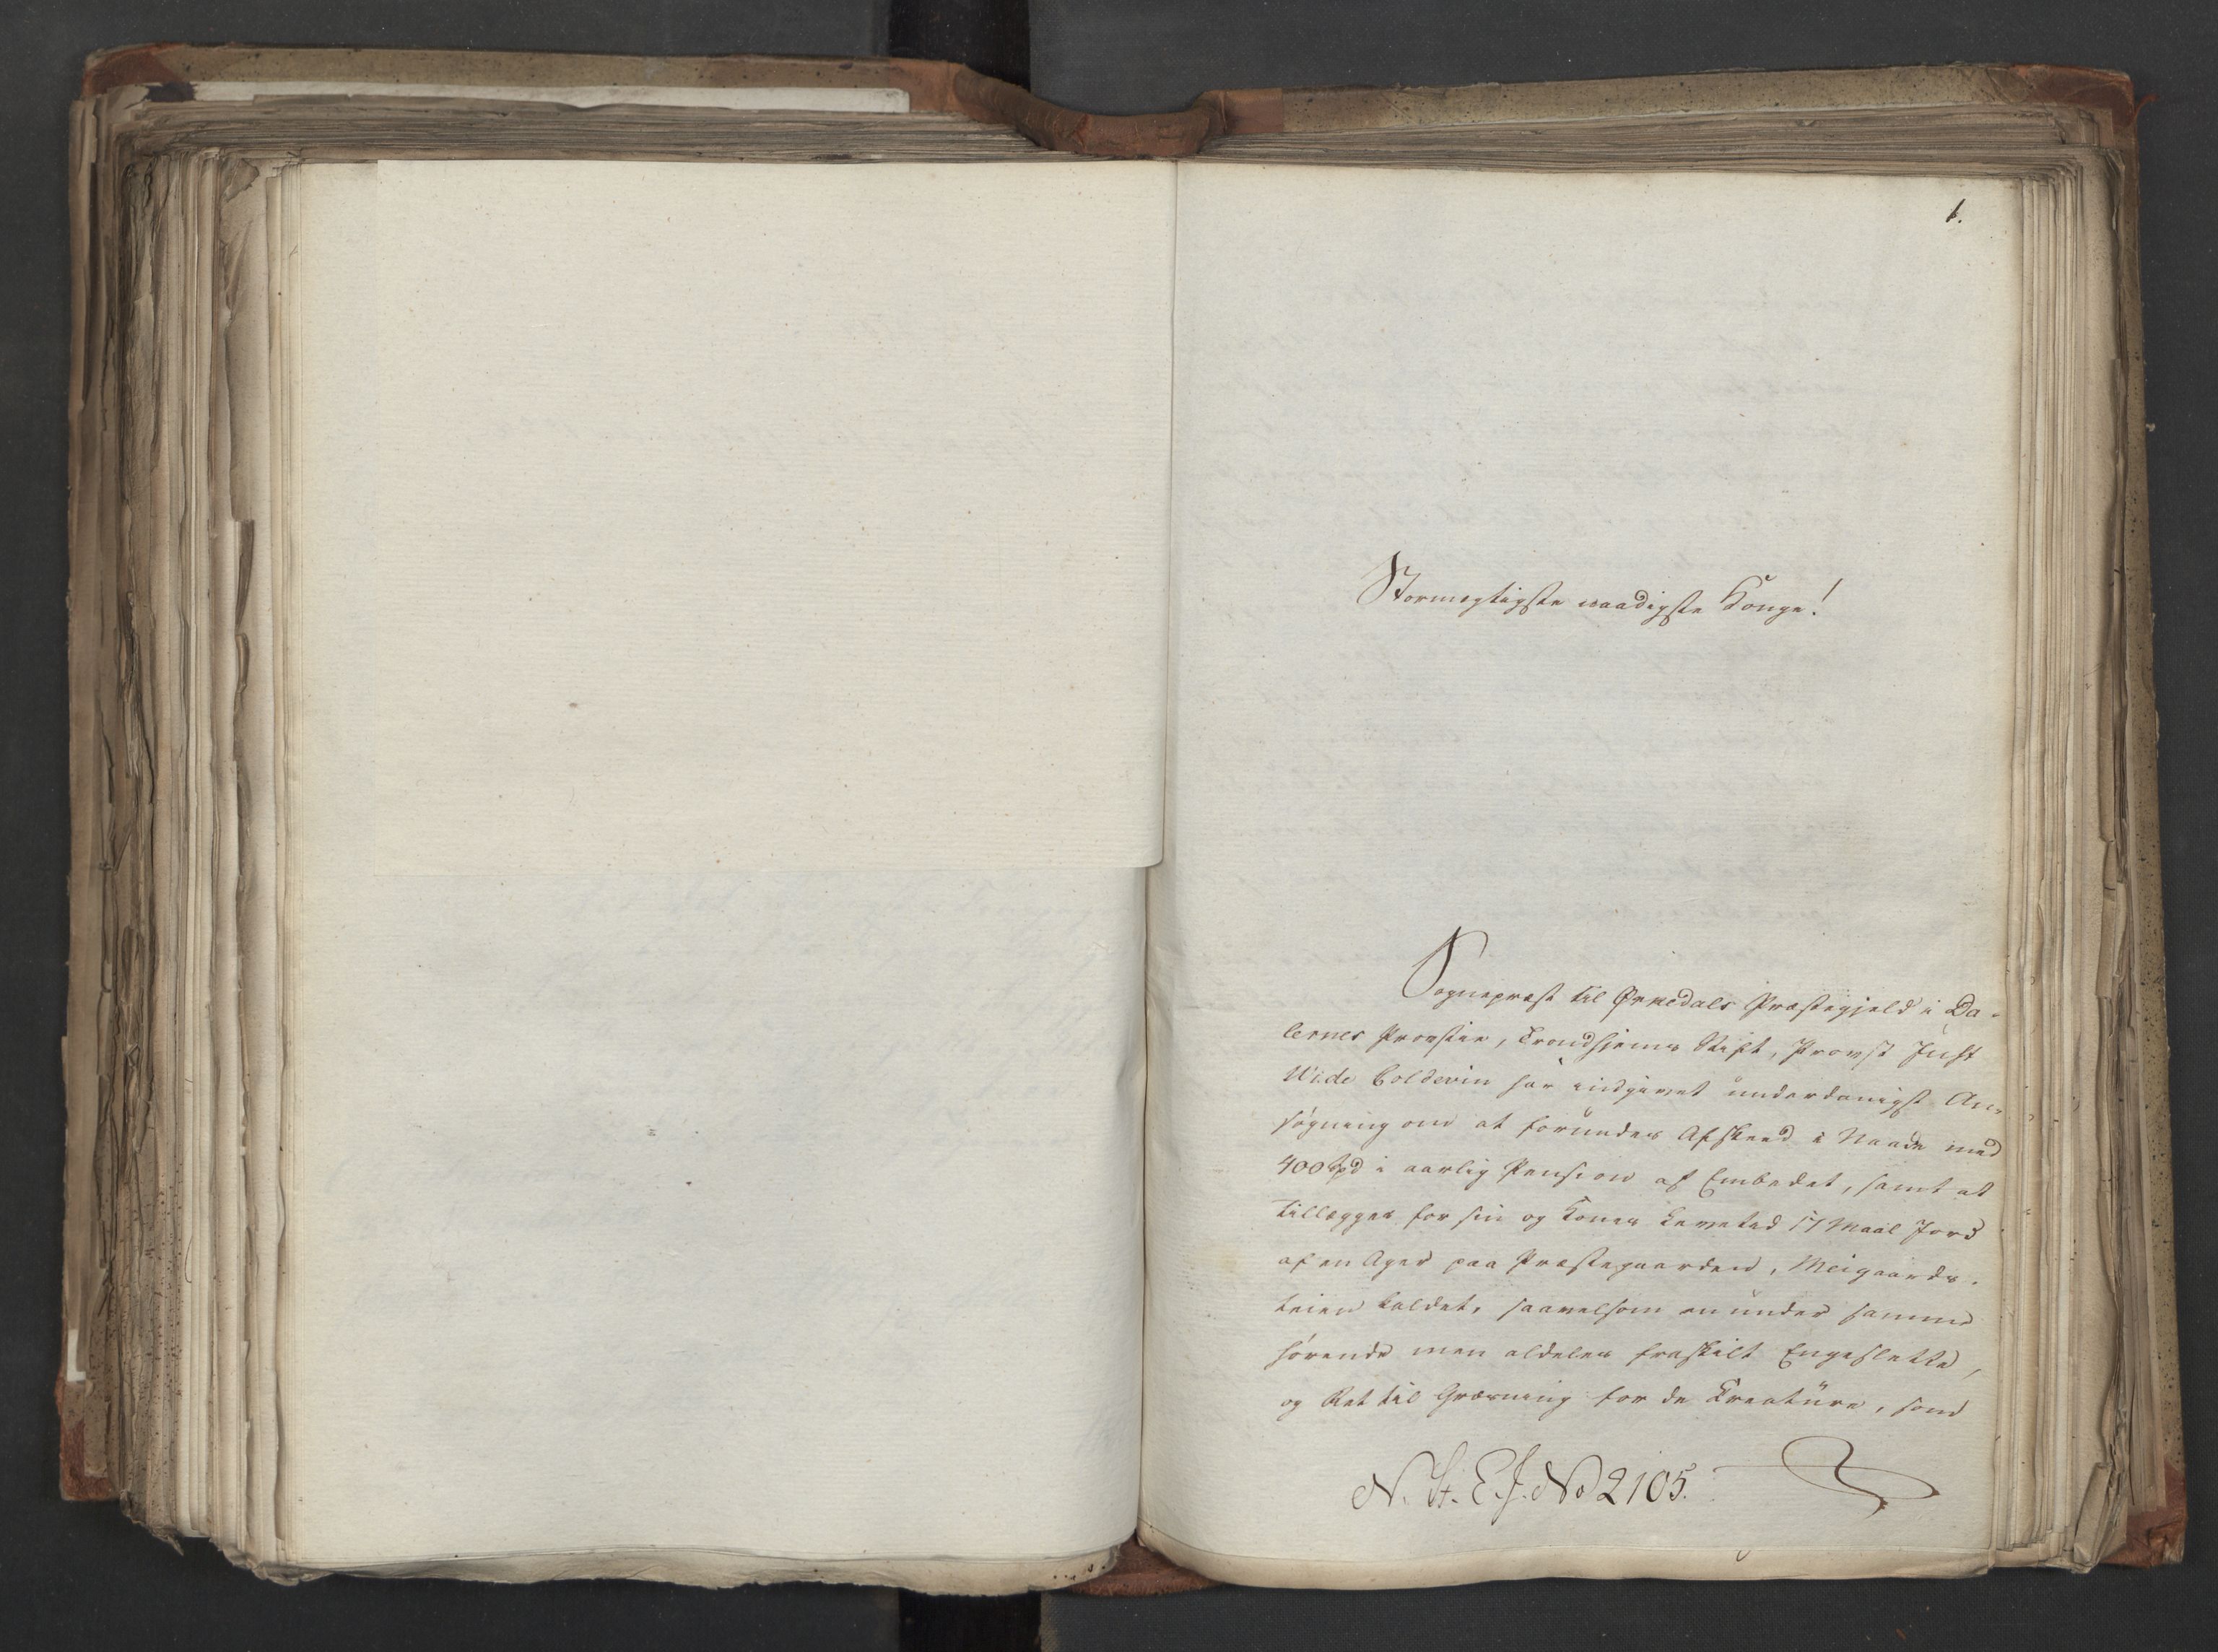 1.
Stormægtigste naadigste Konge!
Sognepræst til Ørkedals Præstegjeld i Da-
lernes Provstie, Trondhjems Stift, Provst Just
Wide Coldevin har indgivet underdanigst An-
søgning om at forundes Afskeed i Naade med
400 Spd i aarlig Pension af Embedet, samt at
tillægges for sin og Kones Levetid 17 Maal Jord
af en Ager paa Præstegaarden, Meigaards-
teien kaldet, saavelsom en under samme
hørende men aldeles fraskilt Engeslette,
og Ret til Græsning for de Kreature, som
N. St. E. J. No 2105.